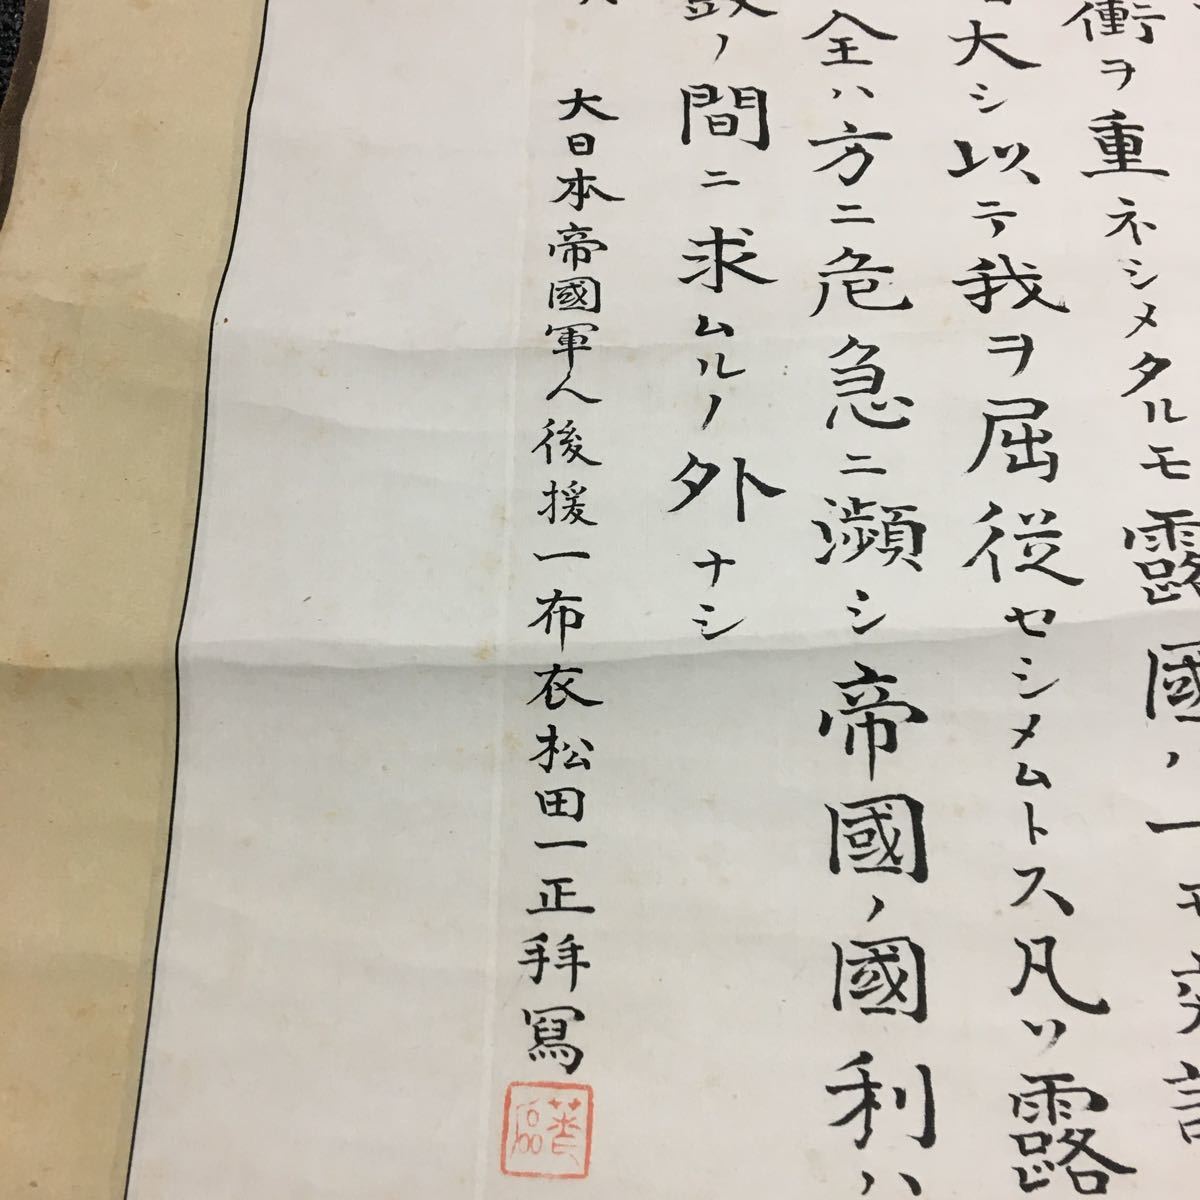 衝ヲ重ネシメタルモ露國ノ一モ交
大シ以テ我ヲ屈從セシメムトス凡ソ露
全ハ方ニ危急ニ瀕シ帝國ノ國利ハ
ノ間ニ求ムルノ外ナシ
大日本帝國軍人後援一布衣松田一正拜寫